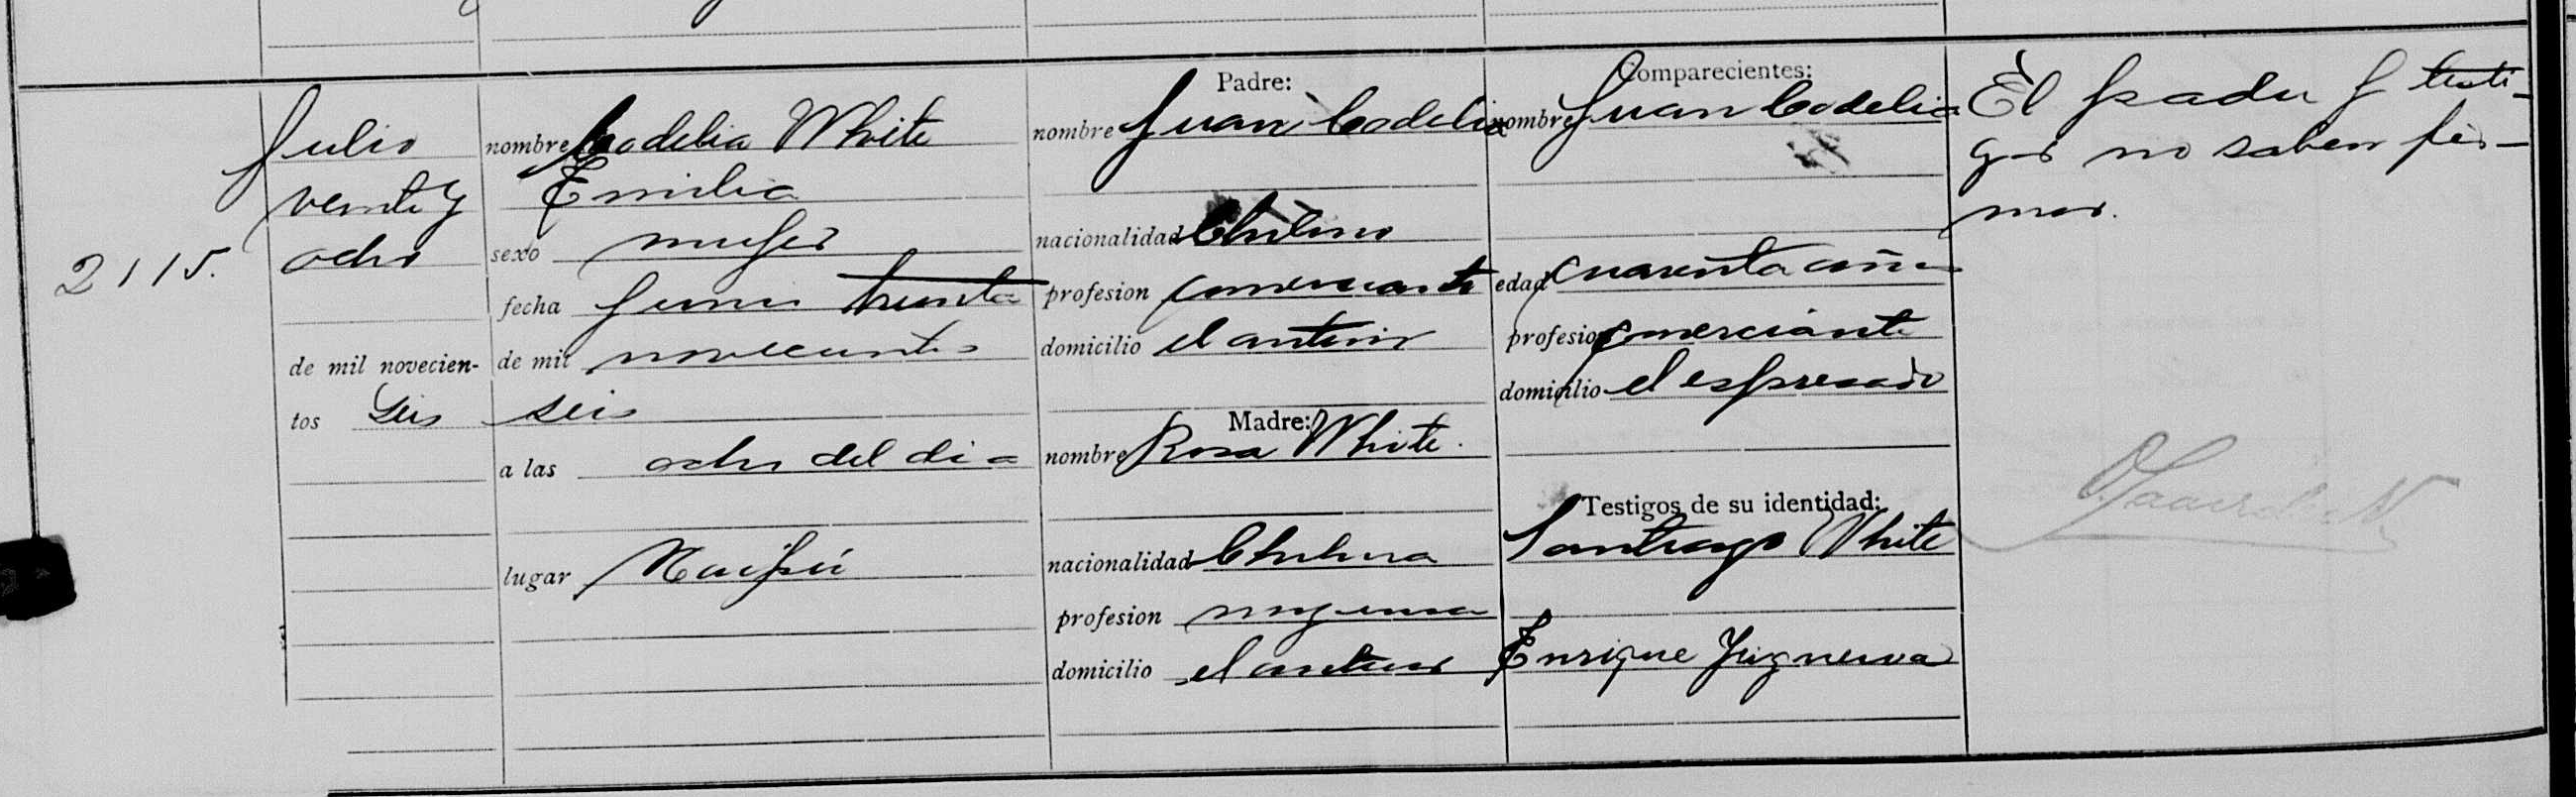 2115.
Julio
veinte y
ocho
de mil novecien-
tos Seis
nombre Codelia White
Emilia
sexo mujer
fecha Junio treinta
de mil novecientos
seis
a las ocho del dia
lugar Maipú
Padre:
nombre Juan Codelia
nacionalidad Chileno
profesion comerciante
domicilio el anterior
Madre:
nombre Rosa White.
nacionalidad Chilena
profesion ninguna
domicilio el anterior
Comparecientes:
nombre Juan Codelia
edad cuarenta años
profesion comerciante
domicilio el espresado
Testigos de su identidad:
Santiago White
Enrique
El padre y testi-
gos no saben fir-
mar.